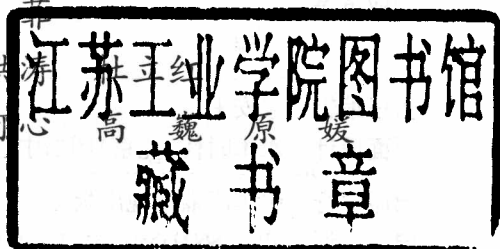 江苏工业学院图书馆
藏书章
高巍 原媛